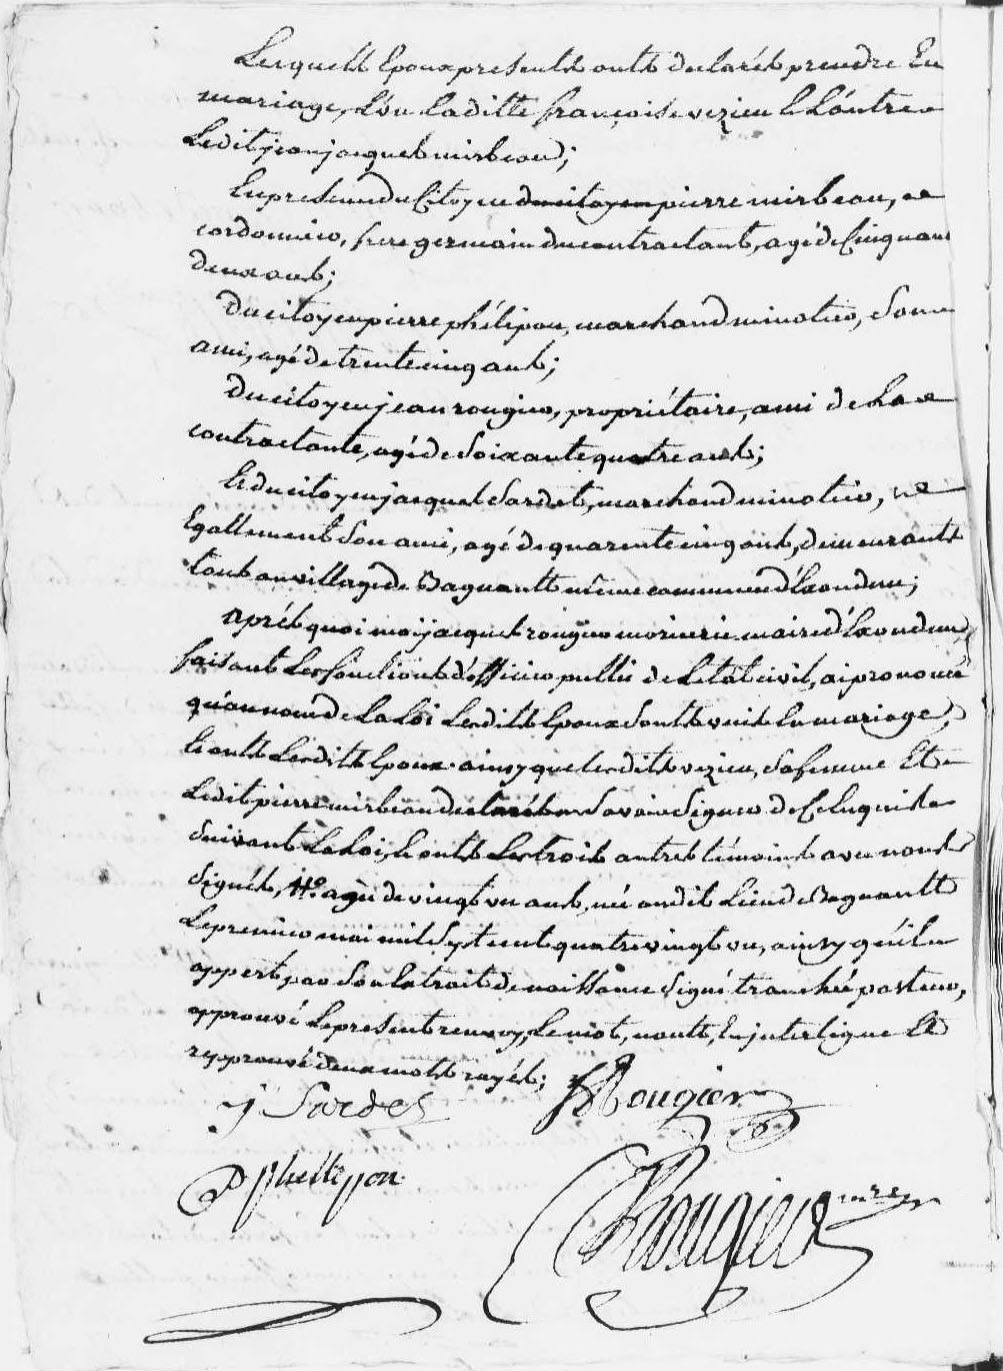 Lesquels Epoux presents onts declarés prendre En
mariage, L'un Laditte françoise vezieu & L'autre
Ledit jean jacques mirbeau;
En presence du Citoyen du citoyen pierre mirbeau,
cordonnier, frere germain du contractant, agé de Cinquante
deux ans;
Du citoyen pierre phélipon, marchand minotier, Son
ami, agé de trente cinq ans;
Du citoyen jean rougier, propriétaire, ami de La
contractante, agé de Soixante quatre ans;
Et du citoyen jacques Sardes, marchand minotier,
Egallement Son ami, agé de quarente cinq ans, demeurants
tous au village de Bagnault même commune d'Exoudun;
Aprés quoi moi jacques rougier maire d'Exoudun,
faisant Les fonctions d'officier public de L'etat civil, ai prononcé
qu'au nom de La Loi Lesdits Epoux Sonts unis En mariage,
Et onts Lesdits Epoux ainsy que Ledits vezieu, Sa femme Et
Ledit pierre mirbeau declarés ne Savoir Signer de Ce Enquis
Suivant La Loi, Et onts Les trois autres témoins avec nous
Signés, #° agée de vingt un ans, née audit Lieu de Bagnault
Le premier mai mil Sept cent quatre vingt un, ainsy qu'il
appert, par Son Extrait de naissance Signé tranchée pasteur,
approuvé Le present renvoy, Le mot, nonts, En interligne Et
repprouvé deux mots rayés;
J Sardes Rougier
P Phellipon
Rougier mre